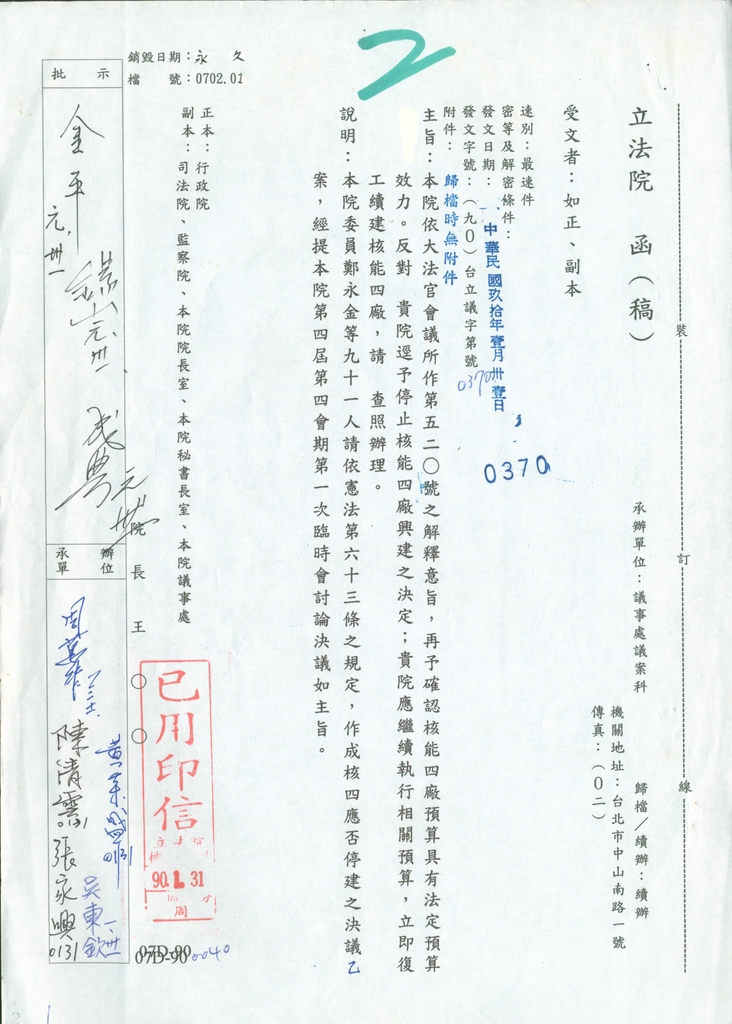 立法院　函（稿）
承辦單位：議事處議案科
歸檔／續辦：續辦
機關地址：台北市中山南路一號
傳真：（０二）
受文者：如正、副本
速別：最速件
密等及解密條件：
發文日期：中華民國玖拾年壹月卅壹日
發文字號：（九０）台立議字第　號
0370
0370
附件：歸檔時無附件
主旨：本院依大法官會議所作第五二○號之解釋意旨，再予確認核能四廠預算具有法定預算
效力。反對　貴院逕予停止核能四廠興建之決定；貴院應繼續執行相關預算，立即復
工續建核能四廠，請　查照辦理。
說明：本院委員鄭永金等九十一人請依憲法第六十三條之規定，作成核四應否停建之決議
案，經提本院第四屆第四會期第一次臨時會討論決議如主旨。
正本：行政院
副本：司法院、監察院、本院院長室、本院秘書長室、本院議事處
銷毀日期：永久
檔　　號：0702.01
院長　王　○　○
已用印信
90.1.31
周
07D-90
0040
批　示
金平
元.卅一
元.卅一
承辦
單位
陳清雲
0131
張家興
0131
0131
吳東欽
2
裝
訂
線